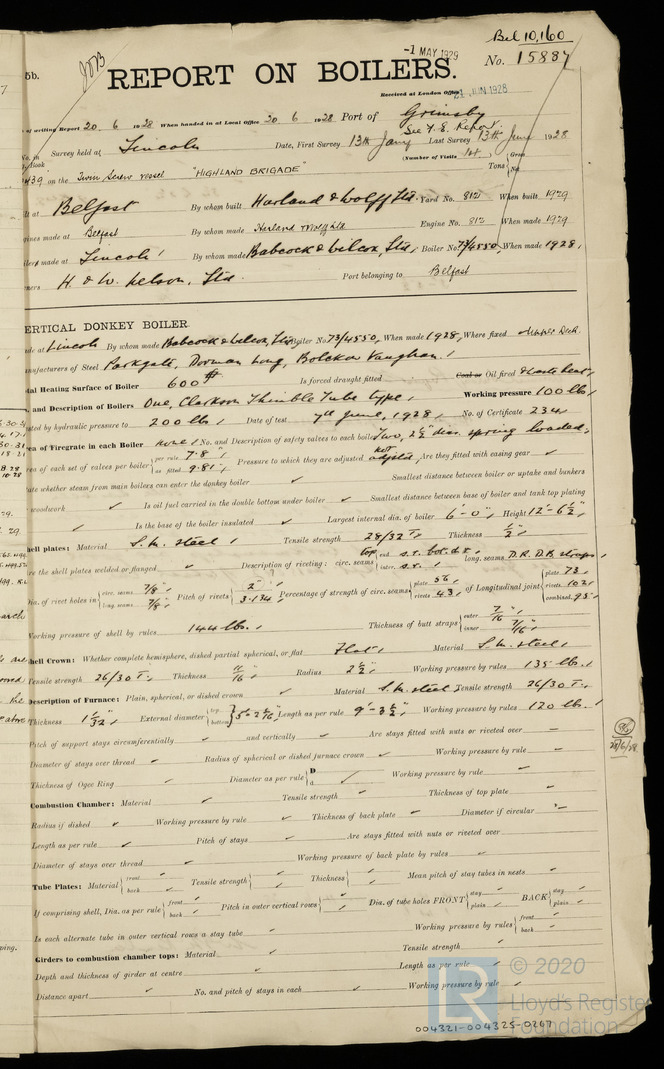 Bel 10,160
-1 MAY 1929
5b.
REPORT ON BOILERS.
No. 15887
Received at London Office 21 JUN 1928
of writing Report 20 6 1928 When handed in at Local Office 20 6 1928 Port of Grimsby
See F.E. Report.
No. in Survey held at Lincoln Date, First Survey 13th Jany Last Survey 13th June 1928
Book (Number of Visits 1st)
on the Twin Screw vessel "HIGHLAND BRIGADE" Tons { Gross Net
lt at Belfast By whom built Harland & Wolff Ltd. Yard No. 812 When built 1929
gines made at Belfast By whom made Harland & Wolff Ltd Engine No. 812 When made 1929
ilers made at Lincoln By whom made Babcock & Wilcox, Ltd, Boiler No. 73/4550, When made 1928,
ners H. & W. Nelson, Ltd. Port belonging to Belfast
ERTICAL DONKEY BOILER.
ade at Lincoln By whom made Babcock & Wilcox, Ltd Boiler No. 73/4550, When made 1928, Where fixed
nufacturers of Steel Parkgate, Dorman Long, Bolckow Vaughan.
tal Heating Surface of Boiler 600 Is forced draught fitted Coal or Oil fired & Waste heat,
. and Description of Boilers One, Clarkson Thimble Tube type, Working pressure 100 lbs,
sted by hydraulic pressure to 200 lbs, Date of test 7th June, 1928, No. of Certificate 234
ea of Firegrate in each Boiler none, No. and Description of safety valves to each boiler Two, 2½" dia. spring loaded,
rea of each set of valves per boiler { per rule 7.8 as fitted 9.81 Pressure to which they are adjusted not adjusted, Are they fitted with easing gear ✓
ate whether steam from main boilers can enter the donkey boiler ✓ Smallest distance between boiler or uptake and bunkers
woodwork ✓ Is oil fuel carried in the double bottom under boiler ✓ Smallest distance between base of boiler and tank top plating
✓ Is the base of the boiler insulated ✓ Largest internal dia. of boiler 6'-0" Height 12'-6½"
hell plates: Material S.M. steel, Tensile strength 28/32 T Thickness ½"
re the shell plates welded or flanged ✓ Description of riveting: circ. seams { end top s.r. bot. d.r. inter. s.r. long. seams D.R. D.B. straps,
Dia. of rivet holes in { circ. seams 7/8" long. seams 7/8" Pitch of rivets { 2" 3.134 Percentage of strength of circ. seams { plate 56 rivets 43 of Longitudinal joint { plate 73 rivets 102 combined 95
Working pressure of shell by rules 144 lbs. Thickness of butt straps { outer 7/16" inner 7/16"
Shell Crown: Whether complete hemisphere, dished partial spherical, or flat Flat, Material S.M. steel,
Tensile strength 26/30 T. Thickness Radius Working pressure by rules 135 lbs.
Description of Furnace: Plain, spherical, or dished crown ✓ Material S.M. steel Tensile strength 26/30 T.
Thickness External diameter { top bottom Length as per rule 9'-3½" Working pressure by rules 120 lbs.
Pitch of support stays circumferentially ✓ and vertically ✓ Are stays fitted with nuts or riveted over —
Diameter of stays over thread ✓ Radius of spherical or dished furnace crown ✓ Working pressure by rule —
Thickness of Ogee Ring ✓ Diameter as per rule { D d ✓ Working pressure by rule —
Combustion Chamber: Material ✓ Tensile strength ✓ Thickness of top plate —
Radius if dished ✓ Working pressure by rule ✓ Thickness of back plate ✓ Diameter if circular —
Length as per rule ✓ Pitch of stays ✓ Are stays fitted with nuts or riveted over
Diameter of stays over thread ✓ Working pressure of back plate by rules ✓
Tube Plates: Material { front ✓ back ✓ Tensile strength { ✓ Thickness { ✓ Mean pitch of stay tubes in nests ✓
If comprising shell, Dia. as per rule { front ✓ back ✓ Pitch in outer vertical rows { ✓ Dia. of tube holes FRONT { stay ✓ plain ✓ BACK { stay ✓ plain ✓
Is each alternate tube in outer vertical rows a stay tube ✓ Working pressure by rules { front ✓ back ✓
Girders to combustion chamber tops: Material ✓ Tensile strength ✓
Depth and thickness of girder at centre ✓ Length as per rule ✓
Distance apart ✓ No. and pitch of stays in each ✓ Working pressure by rule ✓
28/6/28
LR © 2020
Lloyd's Register
Foundation
004321-004325-0267